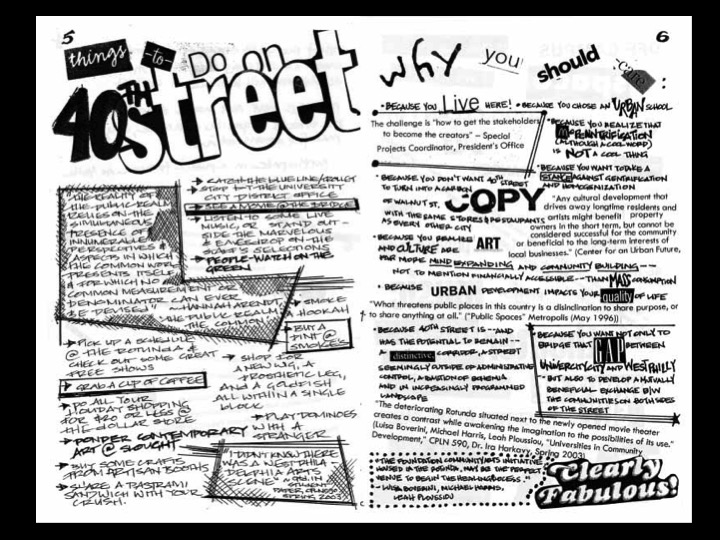 5
things -to- Do on
40TH street
→ CATCH THE BLUE LINE TROLLEY
→ STOP BY THE UNIVERSITY
CITY DISTRICT OFFICE
→ SEE A MOVIE @ THE BRIDGE
→ LISTEN TO SOME LIVE
MUSIC, OR STAND OUT-
SIDE THE MARVELOUS
& EAVESDROP ON THE
STAFF'S SELECTIONS
→ PEOPLE-WATCH ON THE
GREEN
"THE REALITY OF
THE PUBLIC REALM
RELIES ON THE
SIMULTANEOUS
PRESENCE OF
INNUMERABLE
PERSPECTIVES &
ASPECTS IN WHICH
THE COMMON WORLD
PRESENTS ITSELF
& FOR WHICH NO
COMMON MEASUREMENT OR
DENOMINATOR CAN EVER
BE DEVISED" ~HANNAH ARENDT,
THE PUBLIC REALM:
THE COMMON
→ SMOKE
HOOKAH
→ BUY A
PINT @
SMOKES
→ PICK UP A SCHEDULE
@ THE ROTUNDA &
CHECK OUT SOME GREAT
FREE SHOWS
→ GRAB A CUP OF COFFEE
→ SHOP FOR
A NEW WIG, A
PROSTHETIC LEG,
AND A GOLDFISH
ALL WITHIN A SINGLE
BLOCK
→ DO ALL YOUR
HOLIDAY SHOPPING
FOR $20 OR LESS @
THE DOLLAR STORE
→ PLAY DOMINOES
WITH A
STRANGER
→ PONDER CONTEMPORARY
ART @ SLOUGHT
→ BUY SOME CRAFTS
FROM ARTISAN BOOTHS
→ SHARE A PASTRAMI
SANDWICH WITH YOUR
CRUSH.
"I DIDN'T KNOW THERE
WAS A WEST PHILA-
DELPHIA ARTS
SCENE"
STUDENT
SPRING 2003
6
why you should care:
• BECAUSE YOU Live HERE! • BECAUSE YOU CHOSE AN URBAN SCHOOL
The challenge is "how to get the stakeholders
to become the creators" – Special
Projects Coordinator, President's Office
• BECAUSE YOU REALIZE THAT
PENNTRIFICATION
(ALTHOUGH A COOL WORD)
IS NOT A COOL THING
• BECAUSE YOU WANT TO TAKE A
STANCE AGAINST GENTRIFICATION
AND HOMOGENIZATION
• BECAUSE YOU DON'T WANT 40TH STREET
TO TURN INTO A CARBON
COPY
OF WALNUT ST.
WITH THE SAME STORES & RESTAURANTS
AS EVERY OTHER CITY
"Any cultural development that
drives away longtime residents and
artists might benefit property
owners in the short term, but cannot be
considered successful for the community
or beneficial to the long-term interests of
local businesses." (Center for an Urban Future,
• BECAUSE YOU REALIZE ART
AND CULTURE ARE
FAR MORE MIND EXPANDING AND COMMUNITY BUILDING --
NOT TO MENTION FINANCIALLY ACCESSIBLE -- THAN MASS CONSUMPTION
• BECAUSE URBAN DEVELOPMENT IMPACTS YOUR quality OF LIFE
"What threatens public places in this country is a disinclination to share purpose, or
to share anything at all." ("Public Spaces" Metropolis (May 1996))
• BECAUSE 40TH STREET IS -- AND
HAS THE POTENTIAL TO REMAIN --
A distinctive CORRIDOR, A STREET
SEEMINGLY OUTSIDE OF ADMINISTRATIVE
CONTROL, A BASTION OF BOHEMIA
AND IN INCREASINGLY PROGRAMMED
LANDSCAPE
• BECAUSE YOU WANT NOT ONLY TO
BRIDGE THAT GAP BETWEEN
UNIVERCITY CITY AND WEST PHILLY
-- BUT ALSO TO DEVELOP A MUTUALLY
BENEFICIAL EXCHANGE B/W
THE COMMUNITIES ON BOTH SIDES
OF THE STREET
"The deteriorating Rotunda situated next to the newly opened movie theater
creates a contrast while awakening the imagination to the possibilities of its use."
(Luisa Boverini, Michael Harris, Leah Ploussiou, "Universities in Community
Development," CPLN 590, Dr. Ira Harkavy, Spring 2003)
"THE FOUNDATION COMMUNITY ARTS INITIATIVE
HOUSED IN THE ROTUNDA, MAY BE THE PERFECT
VENUE TO BEGIN THE HEALING PROCESS."
- LUISA BOVERINI, MICHAEL HARRIS,
LEAH PLOUSSIOU
Clearly
Fabulous!